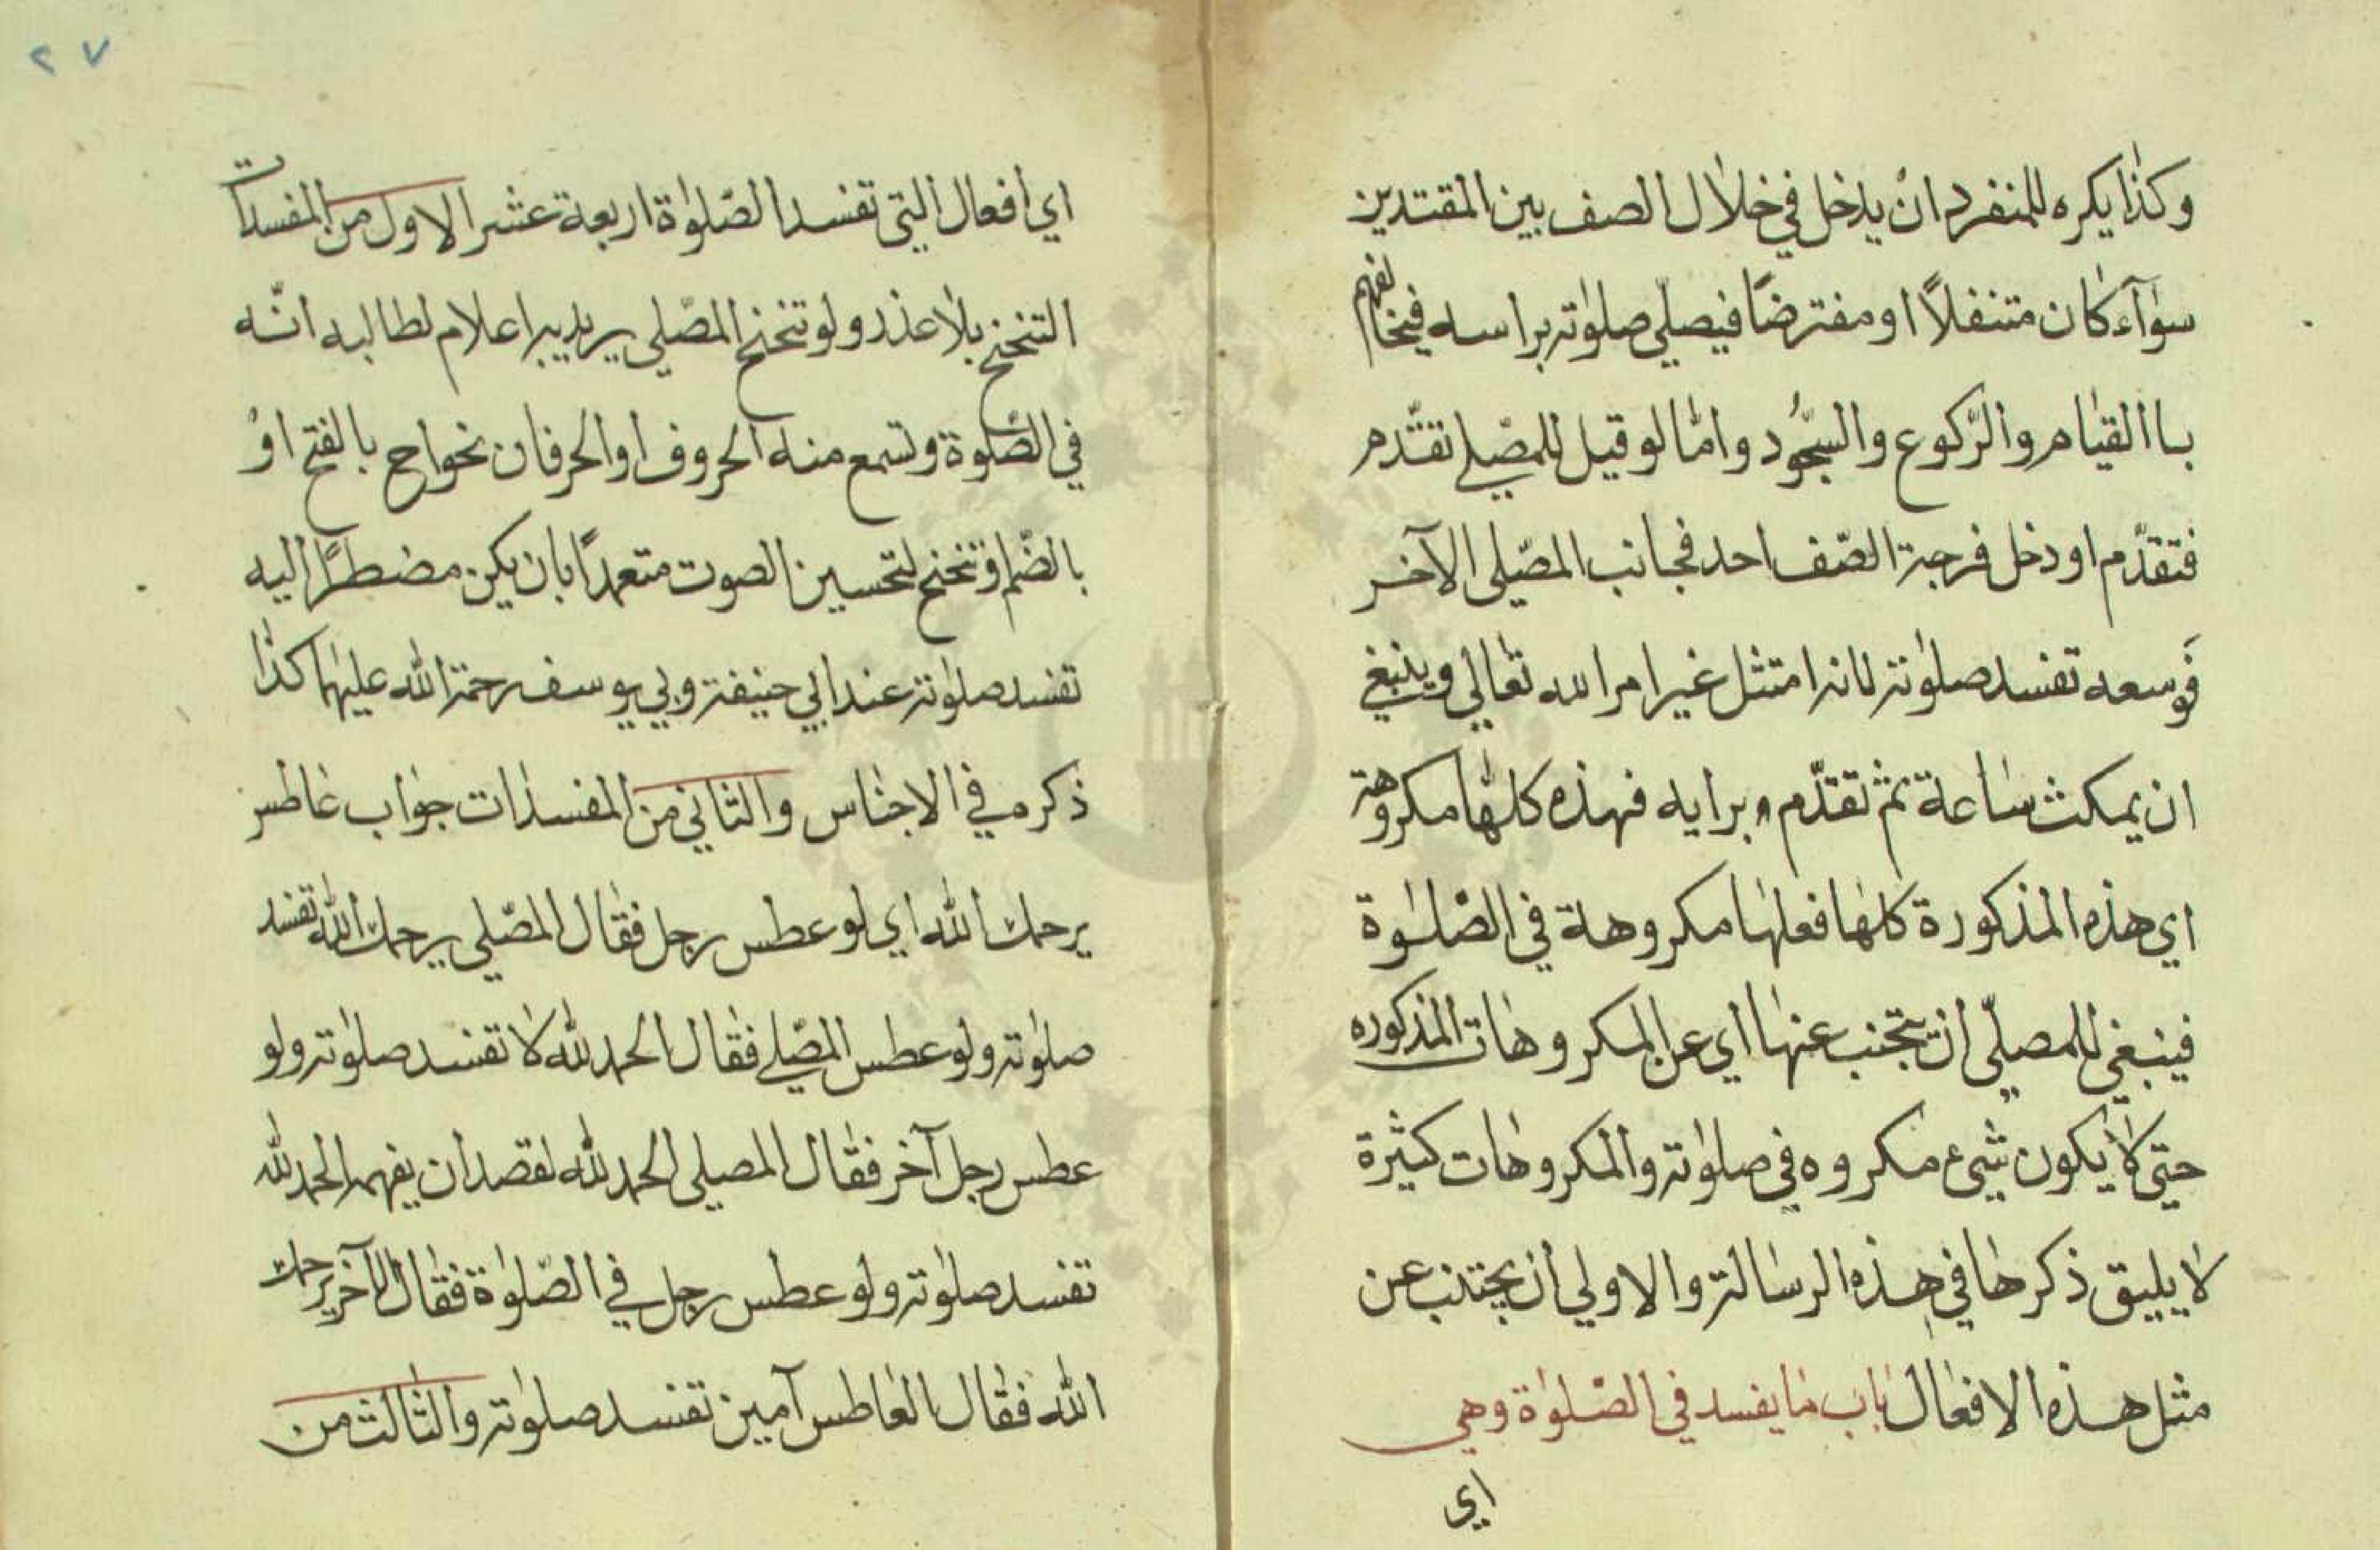 وكذا يكره للمنفرد ان يدخل في خلال الصف بين المقتدين
سوآء كان متنفلاً او مفترضاً فيصلي صلوته براسه فيخالفهم
باالقيام والركوع والسجود واما لو قيل للمصلي تقدّم
فتقدّم او دخل فرجة الصّف احد فجانب المصّلي الآخر
فوسعه تفسد صلوته لانه امتثل غير امر الله تعالي وينبغي
ان يمكث ساعة ثم تقدّم برايه فهذه كلها مكروهة
اي هذه المذكورة كلها فعلها مكروهة في الصّلوة
فينبغي للمصلّي ان يتجنب عنها اي عن المكروهات المذكوره
حتي لا يكون شيء مكروه في صلوته والمكروهات كثيرة
لا يليق ذكرها في هذه الرسالة والاولي ان يجتنب عن
مثل هذه الافعال باب ما يفسد في الصّلوة وهي
اي
٢٧
اي افعال التي تفسد الصّلوة اربعة عشر الاول من المفسدات
التنحنح بلا عذر ولو تنحنح المصّلي يريد به اعلام لطالبه انّه
في الصّلوة وتسمع منه الحروف او الحرفان نحو اح بالفتح اوْ
بالضّم او تنحنح لتحسين الصوت متعمداً بان يكن مضطرًا اليه
تفسد صلوته عند ابي حنيفة وبي يوسف رحمة الله عليهما كذا
ذكره في الاجناس والثاني من المفسدات جواب غاطس
يرحمك الله اي لو عطس رجل فقال المصّلي يرحمك الله تفسد
صلوته ولو عطس المصّلي فقال الحمد لله لا تفسد صلوته ولو
عطس رجل آخر فقال المصلي الحمد لله لقصد ان يفهم الحمد لله
تفسد صلوته ولو عطس رجل في الصّلوة فقال الآخر يرحمك
الله فقال العاطس آمين تفسد صلوته والثالث من